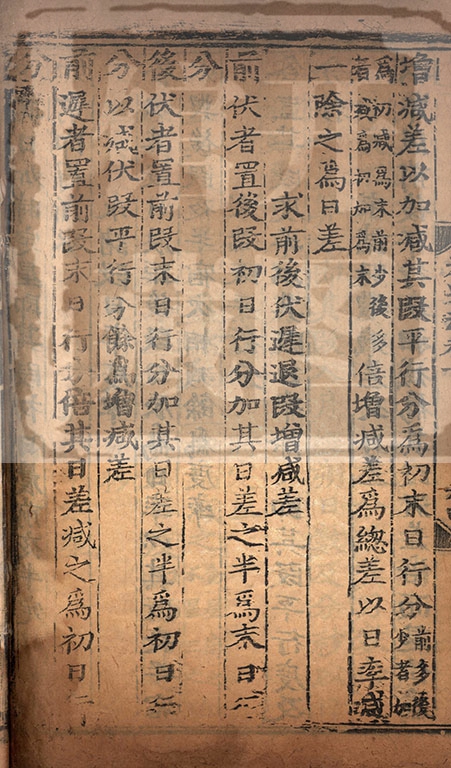 增減差以加減其段平行分爲初末日行分前多後少者加
爲初減爲末前少後多者減爲初加爲末倍增減差爲總差以日率減
一除之爲日差
求前後伏遲退段增減差
前伏者置後段初日行分加其日差之半爲末日行
分
後伏者置前段末日行分加其日差之半爲初日行
分以減伏段平行分餘爲增減差
前遲者置前段末日行分倍其日差減之爲初日行